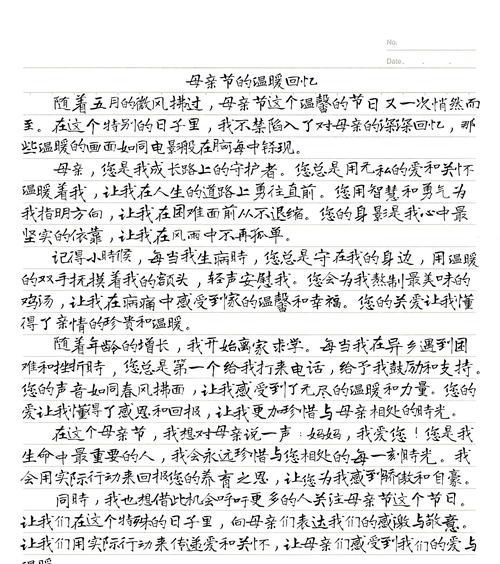 No.
Date.
母亲节的温暖回忆
随着五月的微风拂过，母亲节这个温馨的节日又一次悄然而
至。在这个特别的日子里，我不禁陷入了对母亲的深深回忆，那
些温暖的画面如同电影般在脑海中轻现。
母亲，您是我成长路上的守护者。您总是用无私的爱和关怀
温暖着我，让我在人生的道路上勇往直前。您用智慧和勇气为
我指明方向，让我在困难面前从不退缩。您的身影是我心中最
坚实的依靠，让我在风雨中不再孤单。
记得小时候，每当我生病时，您总是守在我的身边，用温暖
的双手抚摸着我的额头，轻声安慰我。您会为我熬制最美味的
鸡汤，让我在病痛中感受到家的温馨和幸福。您的关爱让我懂
得了亲情的珍贵和温暖。
随着年龄的增长，我开始离家求学。每当我在异乡遇到困
难和挫折时，您总是第一个给我打来电话，给予我鼓励和支持。
您的声音如同春风拂面，让我感受到了无尽的温暖和力量。您的
爱让我懂得了感恩和回报，让我更加珍惜与母亲相处的时光。
在这个母亲节，我想对母亲说一声：妈妈，我爱您！您是我
生命中最重要的人，我会永远珍惜与您相处的每一刻时光。我
会用实际行动来回报您的养育之恩，让您为我感到骄傲和自豪。
同时，我也想借此机会呼吁更多的人关注母亲节这个节日。
让我们在这个特殊的日子里，向母亲们表达我们的感激与敬意。
让我们用实际行动来传递爱和关怀，让母亲们感受到我们的爱与